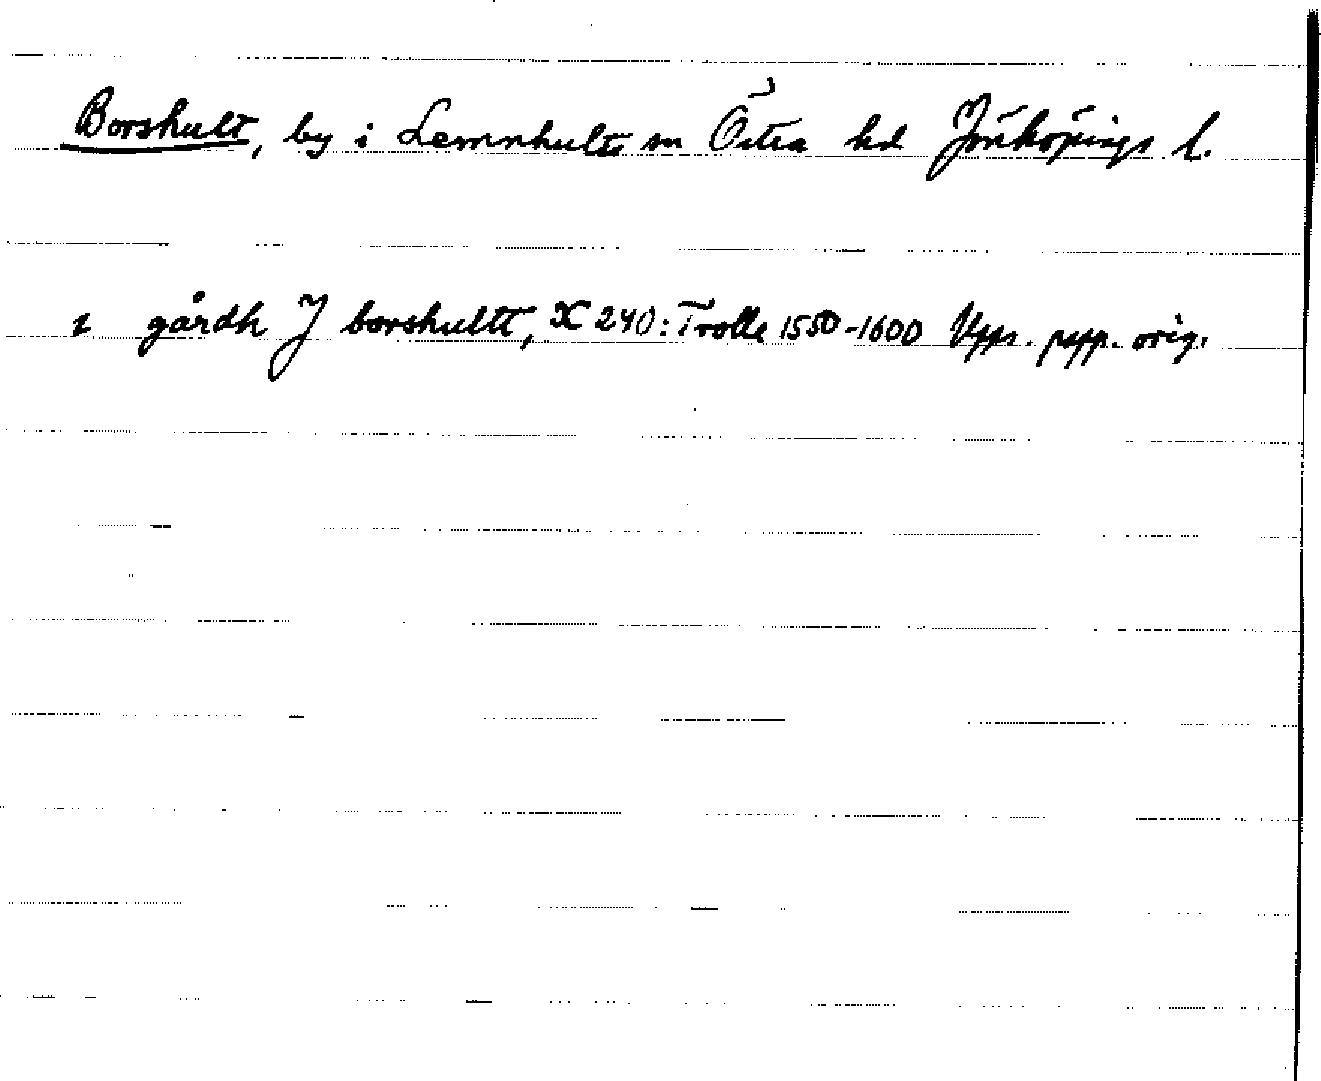 Borshult, by i Lemnhults sn Östra hd Jönköpings l.
1 gårdh J borshultt, X 240: Trolle 1550-1600 Upps. papp. orig.